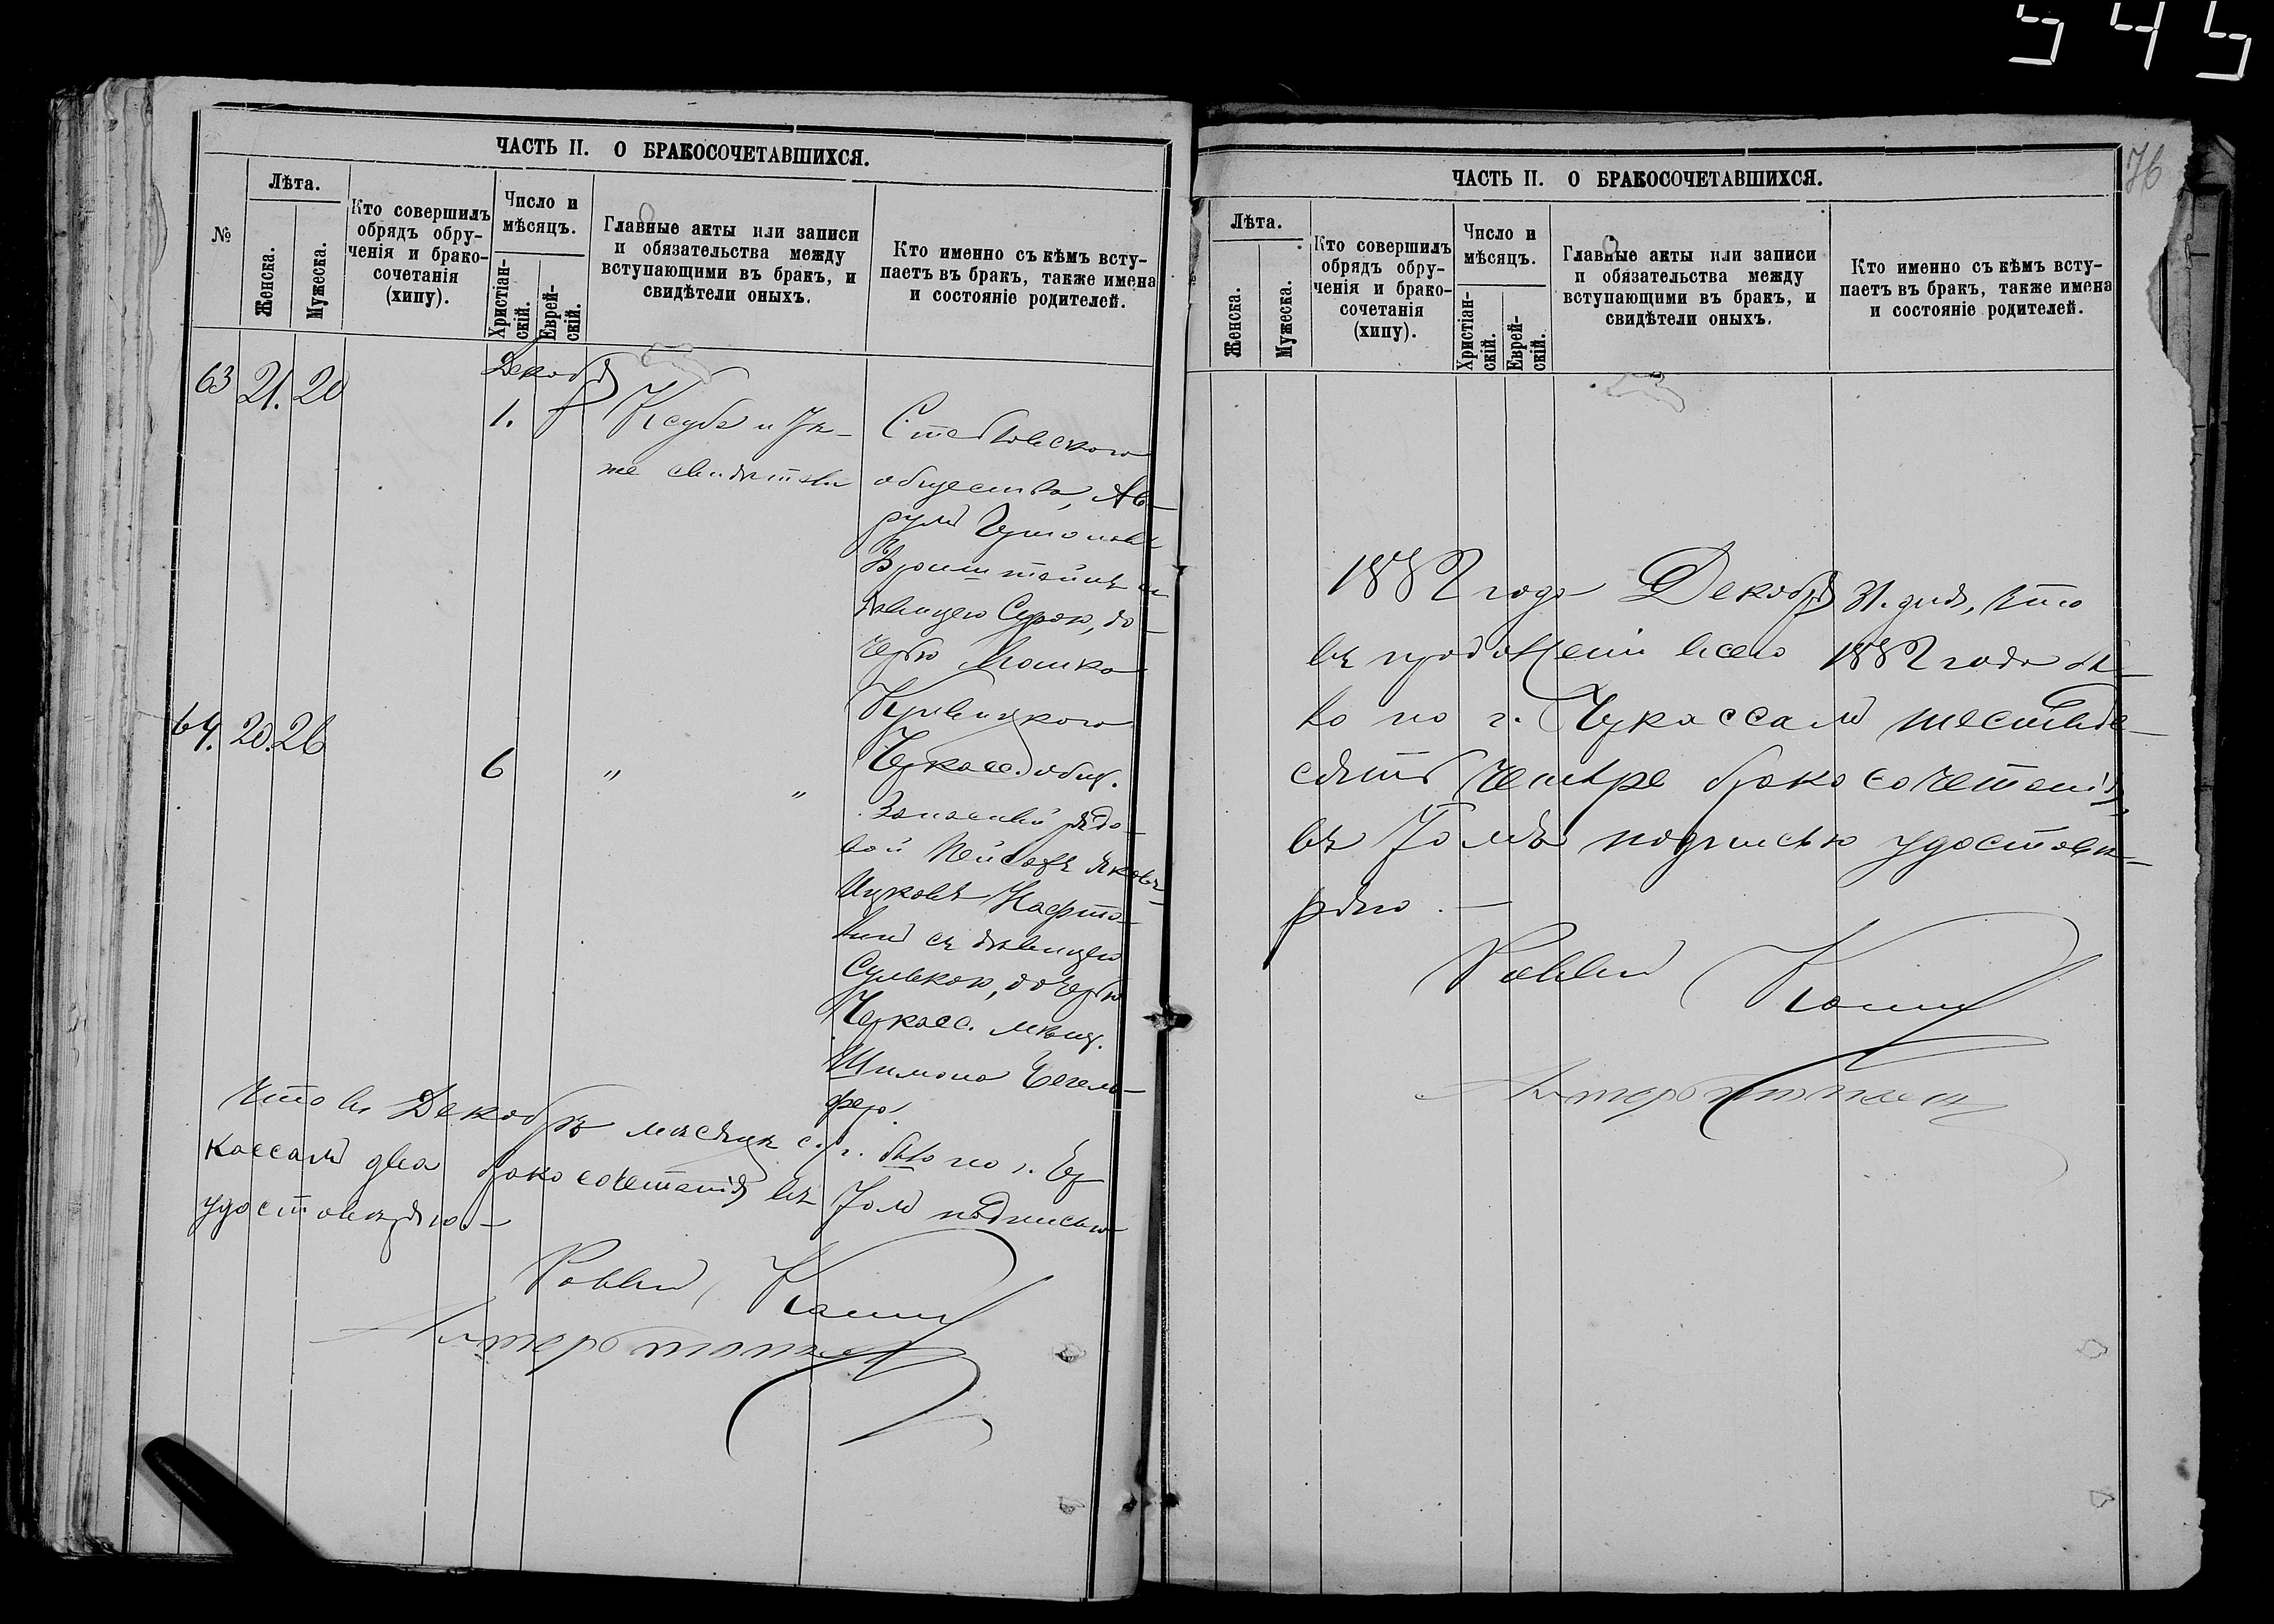 545
ЧАСТЬ II. О БРАКОСОЧЕТАВШИХСЯ.
№
Лѣта.
Женска.
Мужеска.
Кто совершилъ
обрядъ обру-
ченія и брако-
сочетанія
(хипу).
Число и
мѣсяцъ.
Христіан-
скій.
Еврей-
скій.
Главные акты или записи
и обязательства между
вступающими въ бракъ, и
свидѣтели оныхъ.
Кто именно съ кѣмъ всту-
паетъ въ бракъ, также имена
и состояніе родителей.
63 21. 20
Декабря
1.
Ксуба и
же свидѣтели
общества, Ав-
румъ
дѣвицею Сурою, до-
черью Мошка
Кривицкого
64. 20. 26
6 " "
Черкасс. общ.
Запасный рядо-
вой
Ицковъ Нафта-
съ дѣвицею
дочерью
Черкасс. мѣщ.
Шимона
Что въ Декабрѣ мѣсяцѣ с. г. было по г. Чер
кассамъ два бракосочетанія въ томъ подписью
удостовѣряю. —
Раввинъ
ЧАСТЬ II. О БРАКОСОЧЕТАВШИХСЯ.
76
Лѣта.
Женска.
Мужеска.
Кто совершилъ
обрядъ обру-
ченія и брако-
сочетанія
(хипу).
Число и
мѣсяцъ.
Христіан-
скій.
Еврей-
скій.
Главные акты или записи
и обязательства между
вступающими въ бракъ, и
свидѣтели оныхъ.
Кто именно съ кѣмъ всту-
паетъ въ бракъ, также имена
и состояніе родителей.
1882 года Декабря 31. дня, что
въ продолженіи всего 1882 года бы-
ло по г. Черкассамъ шестьде-
сятъ четыре бракосочетанія,
въ томъ подписью удостовѣ-
ряю. —
Раввинъ